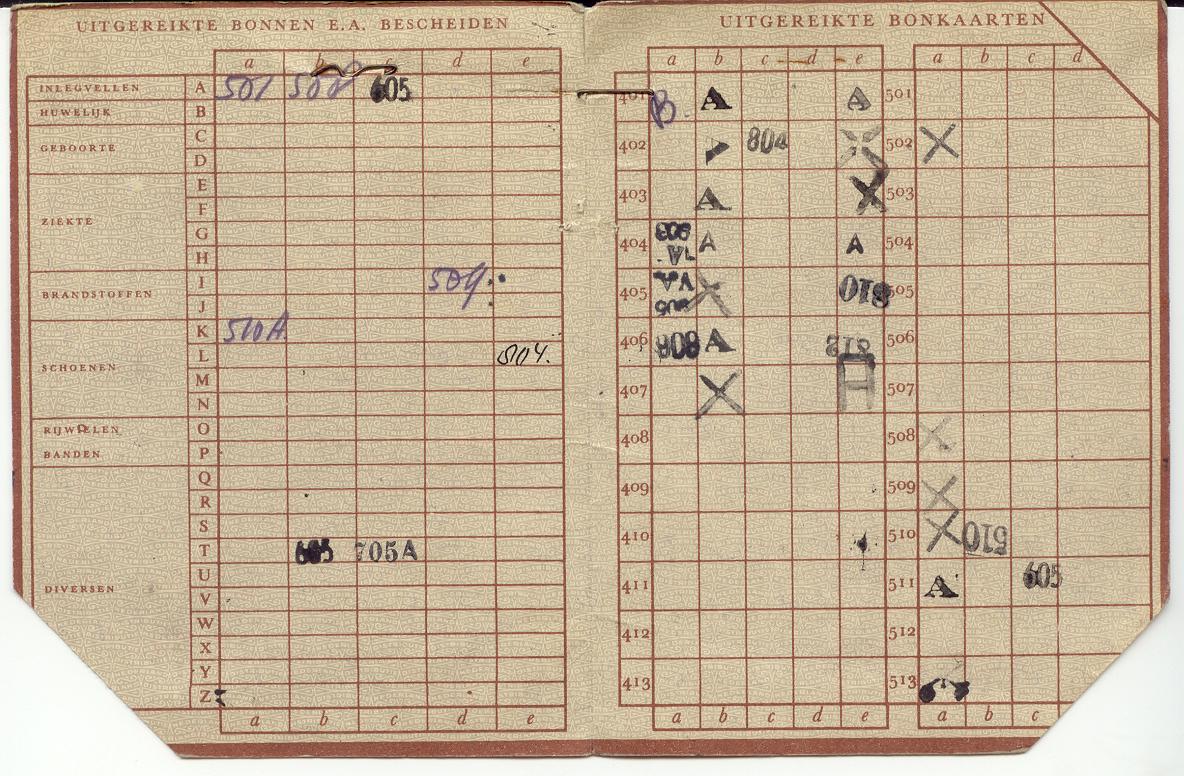 UITGEREIKTE BONNEN E.A. BESCHEIDEN
a b c d e
INLEGVELLEN A 501 508 605
HUWELIJK B
C
GEBOORTE
D
E
F
ZIEKTE
G
H
I 504
BRANDSTOFFEN
J
K 510A
L 504.
SCHOENEN
M
N
RIJWIELEN O
BANDEN P
Q
R
S
T 605 705A
U
DIVERSEN
V
W
X
Y
Z
a b c d e
UITGEREIKTE BONKAARTEN
a b c d e a b c d
401 B A A 501
402 804 X 502 X
403 A X 503
404 A A 504
405 X 810 505
406 808 A 812 506
407 X 507
408 508 X
409 509 X
410 510 X 510
411 511 A 605
412 512
413 513
a b c d e a b c